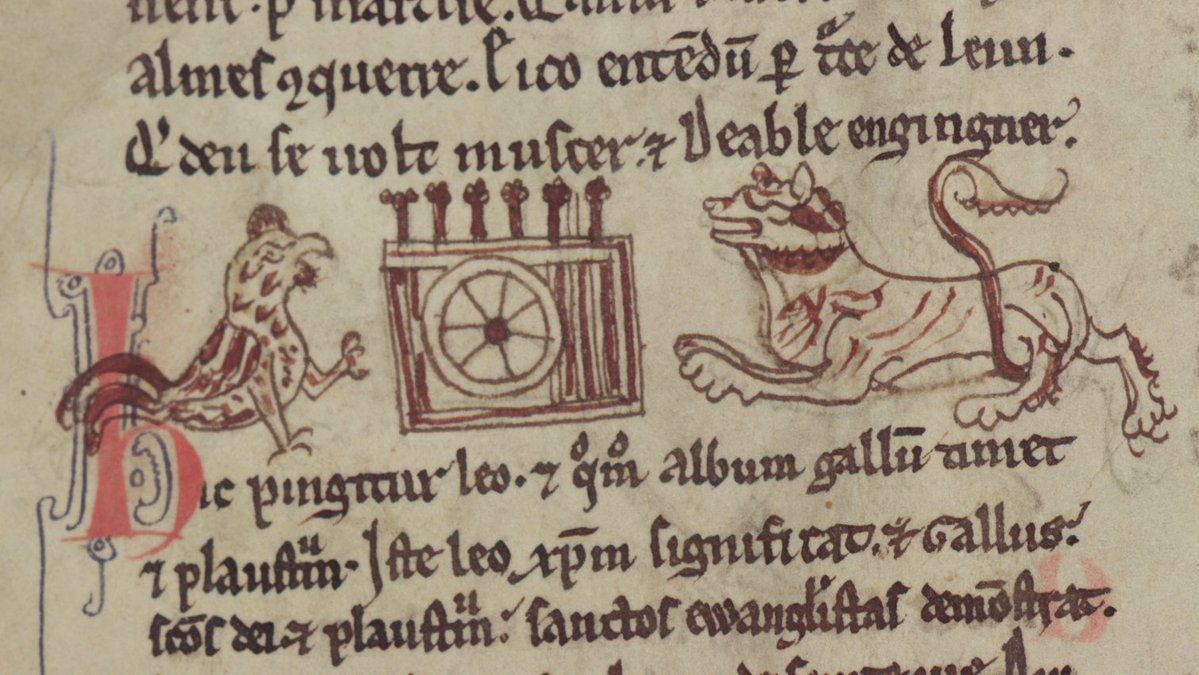 almes ꝯquerre. Si co entēdū ꝑ tͣce de leun.
Q' deu se uolt muscer. ⁊ Deable enginguer.
Hic pingitur leo. ⁊ qͦmͦ album gallū timet
⁊ plaustm̃. Iste leo xp̄m significat. ⁊ Gallus.
scōs dei. ⁊ plaustm̃. sanctos ewangl'istas demōstrat.